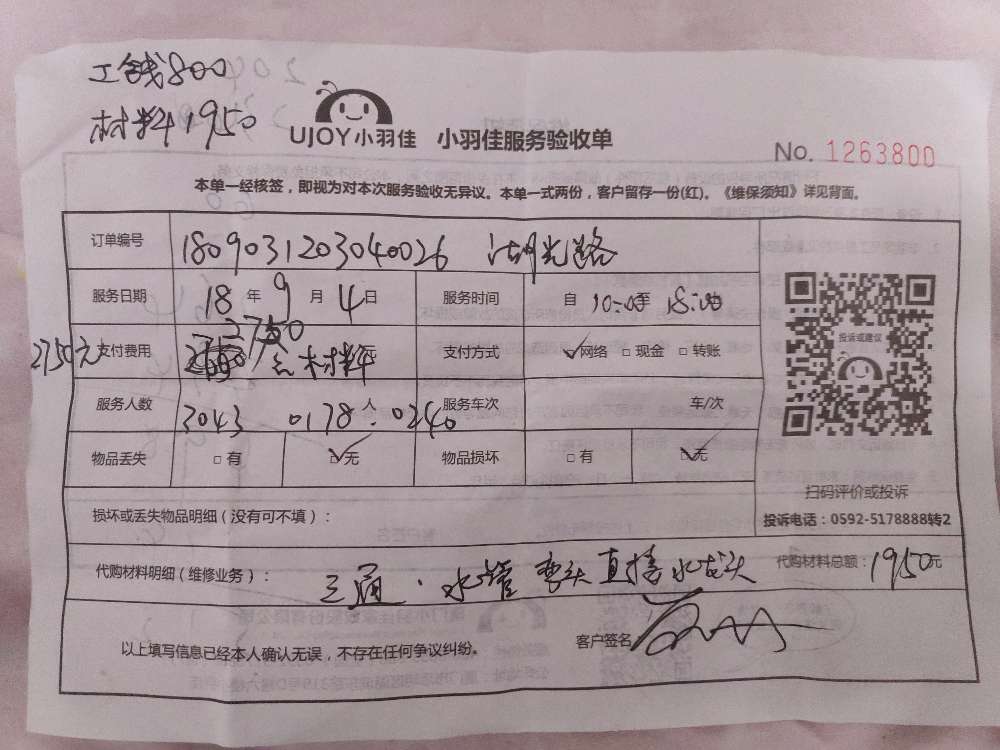 工钱800
材料1950
UJOY小羽佳 小羽佳服务验收单
No. 1263800
本单一经核签，即视为对本次服务验收无异议。本单一式两份，客户留存一份(红)。《维保须知》详见背面。
订单编号 1809031203040026 湖光路
服务日期 18 年 9 月 4 日 服务时间 自 10:00至 18:00
2750元 支付费用 2750 含材料 支付方式 ✓网络 □现金 □转账
投诉或建议
服务人数 3043 0178 人 0240 服务车次 车/次
物品丢失 □有 ☑无 物品损坏 □有 ☑无
扫码评价或投诉
损坏或丢失物品明细（没有可不填）：
投诉电话：0592-5178888转2
代购材料明细（维修业务）： 三通．水管 弯头 直接 水龙头 代购材料总额： 1950元
以上填写信息已经本人确认无误，不存在任何争议纠纷。 客户签名